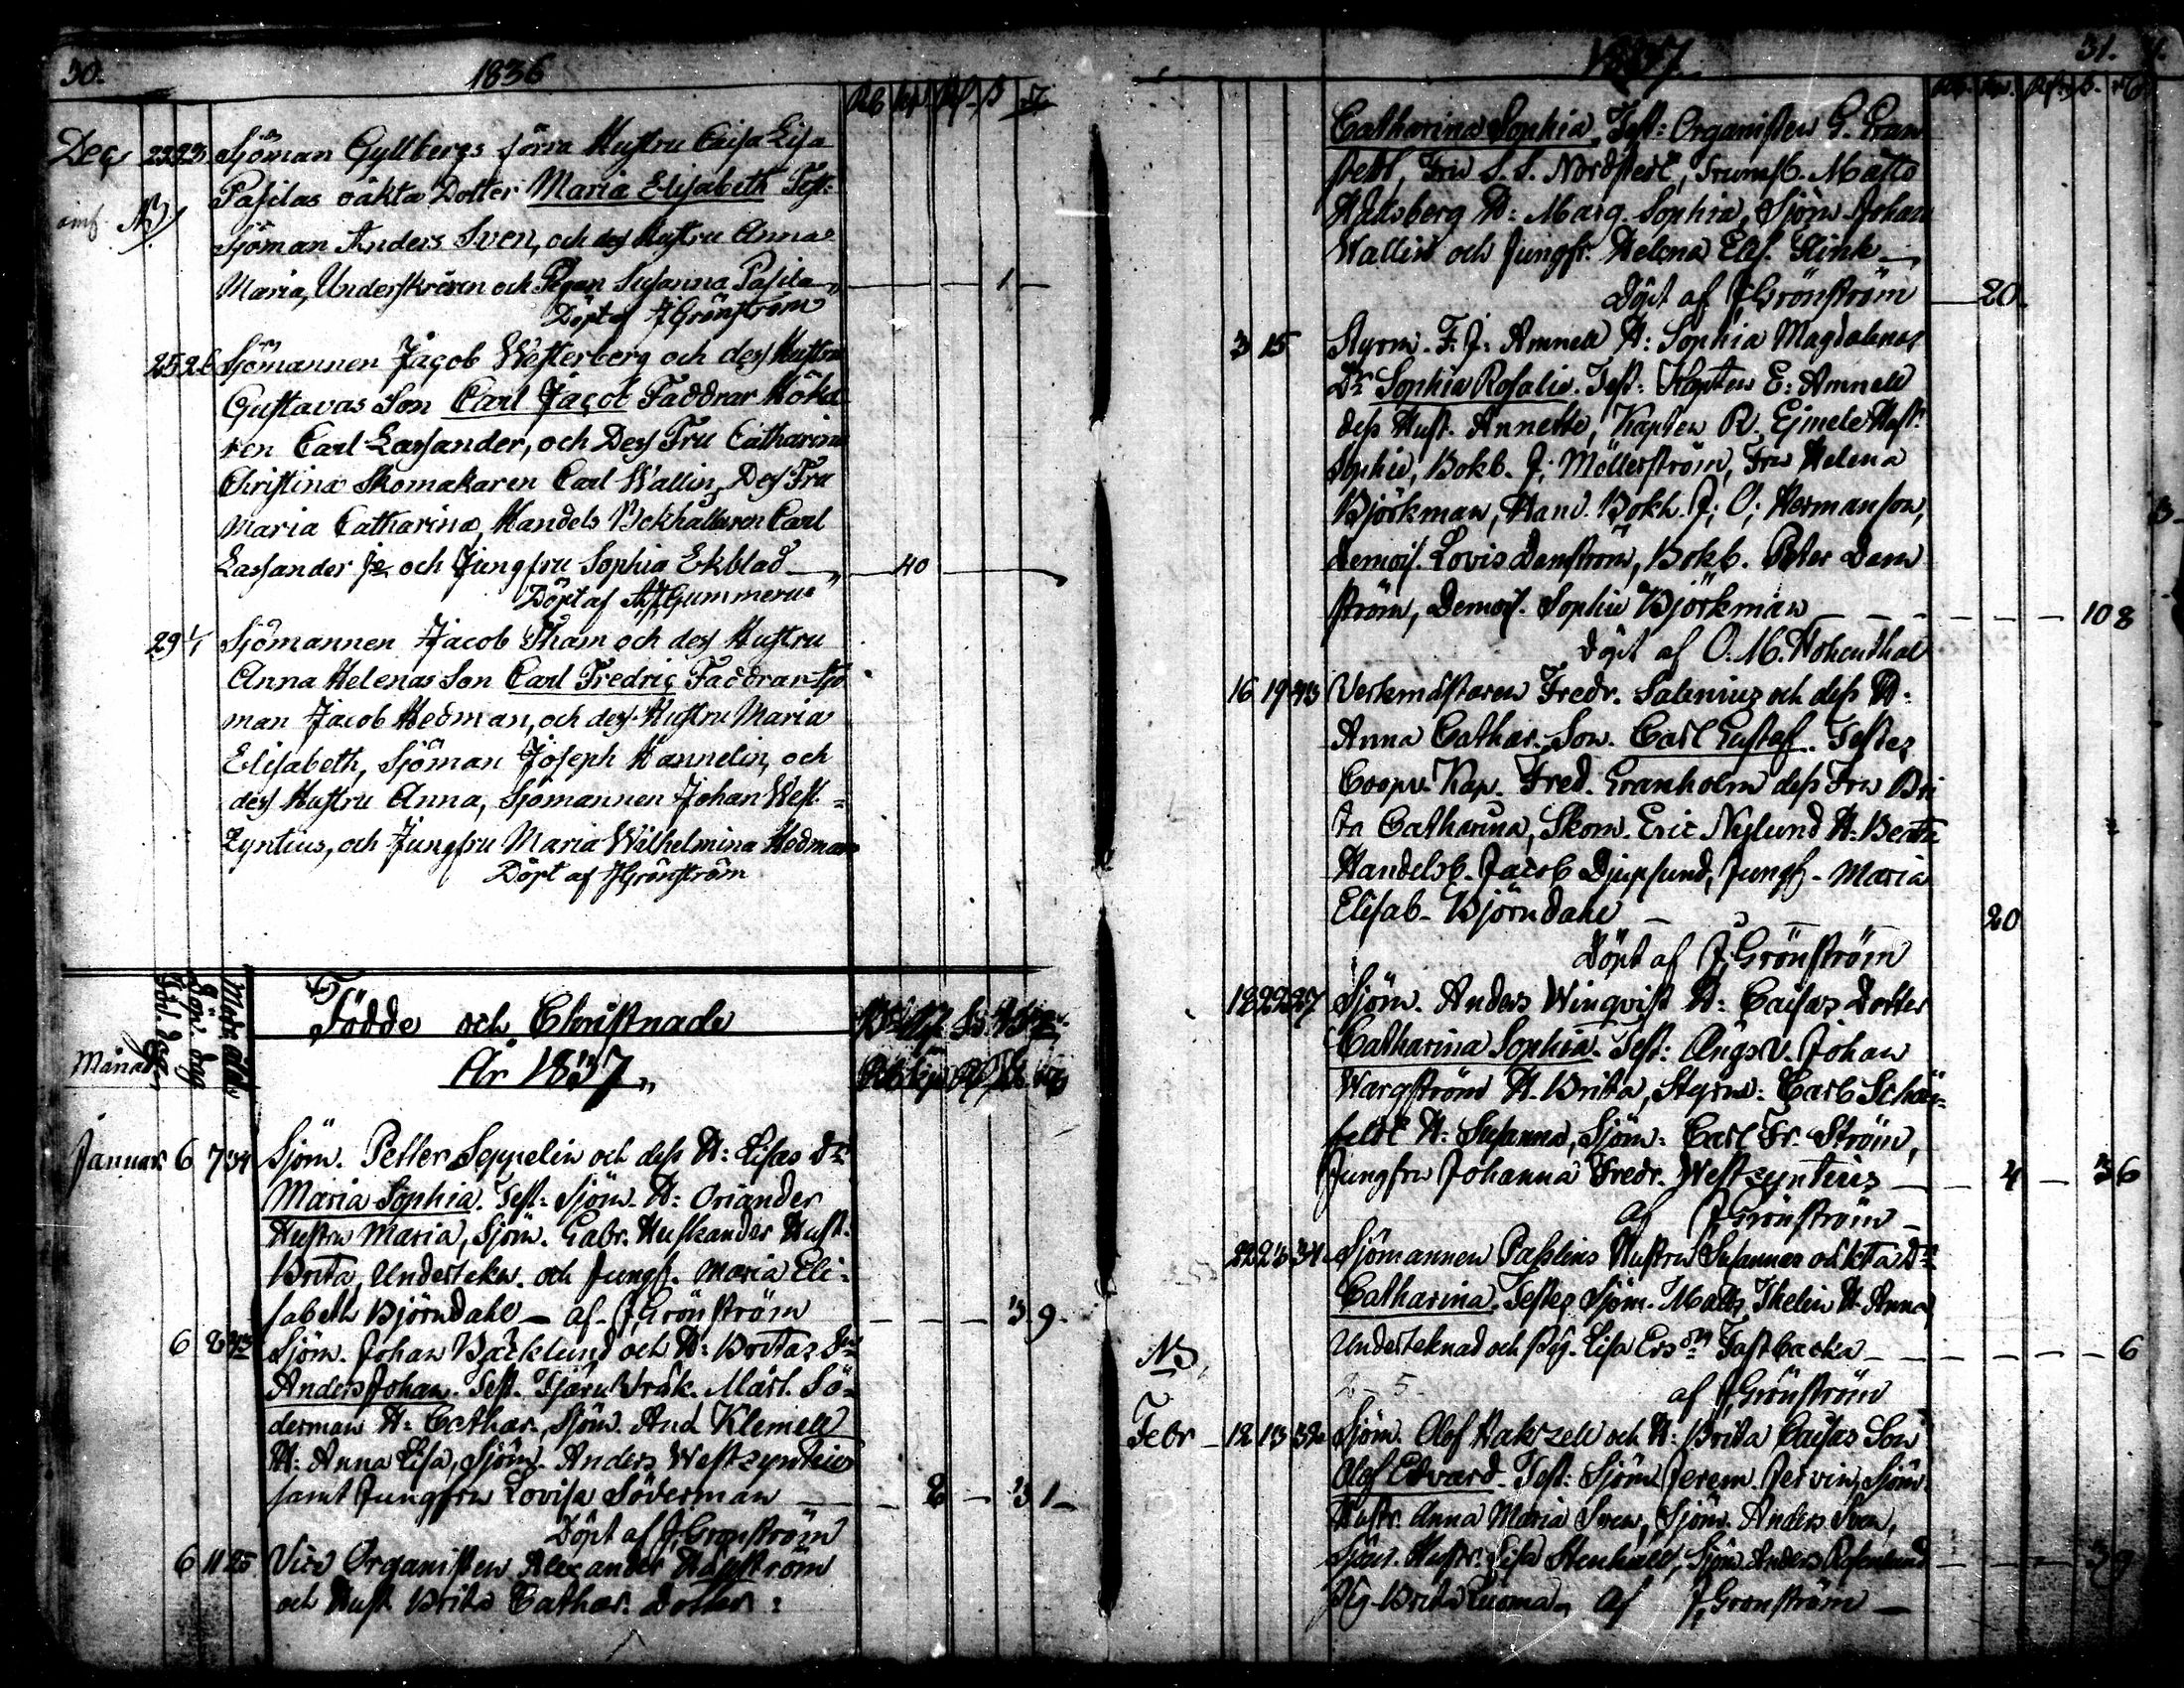 30.
1836
Rb kop Rf s
Dec 22 23 Sjöman Gyllbergs förra Hustru Caisa Lisa
Pasilas oäkta Dotter Maria Elisabeth Test:
Sjöman Anders Sven, och dess Hustru Anna
Maria, Underskrifven och Pigan Susanna Pasila 1
Döpt af J Grönström
25 26 Sjömannen Jacob Westerberg och dess Hustru
Gustavas Son Carl Jacob Faddrar Höka
ren Carl Lassander, och Dess Fru Catharina
Christina Skomakaren Carl Wallin, Dess Fru
Maria Catharina, Handels Bokhållaren Carl
Lassander Jr och Jungfru Sophia Ekblad 40
Döpt af Gummerus
29 1 Sjömannen Jacob Tham och dess Hustru
Anna Helenas Son Carl Fredric Faddrar Sjö
man Jacob Hedman, och dess Hustru Maria
Elisabeth, Sjöman Joseph Hannelin, och
dess Hustru Anna, Sjömannen Johan West=
zyntius, och Jungfru Maria Wilhelmina Hedman
Döpt af J Grönström
Födde och Christnade
År 1837
Månad
Januar. 6 7 34 Sjöm. Petter Seppelin och dess H: Lisas Dr
Maria Sophia. Test: Sjöm. H: Oriander
Hustru Maria, Sjöm. Gabr. Huskander Hust.
Brita, Undertekn. och Jungf. Maria Eli=
sabeth Björndahl af J Grönström 3 9
6 8 Sjöm. Johan Bäcklund och H: Britas Son
Anders Johan. Test. Mårt. Sö=
derman H: Cathar., Sjöm. And Klemell
H: Anna Lisa, Sjöm. Anders Westzyntius
samt Jungfru Lovisa Söderman 2 3 1
Döpt af J Grönström
6 11 25 Vice Organisten Alexander Häggström
och Hust. Brita Cathar. Dotter:
1837
31.
Catharina Sophia. Test: Organisten G. Gran
stedt, Fru S. S. Nordstedt, Trumsl. Matts
Hallsberg H: Marg. Sophia, Sjöm. Johan
Wallin och Jungfr. Helena Elis. Glink
Döpt af J Grönström 20
3 15 Styrm. F. J. Amnell H: Sophia Magdalenas
Dr Sophia Rosalie. Test: Kapten E. Amnell
dess Hust. Annette, Kapten R. Ejmele Hust:
Sophie, Bokb. J. Möllerström, Fru Helena
Björkman, Hand. Bokh. J. O. Hermanson,
Demois. Lovis Damström, Bokb. Peter Dam
ström, Demois. Sophie Björkman 10 8
Döpt af O. M. Hohenthal
16 19 43 Verkmästaren Fredr. Salenius och dess H:
Anna Cathar. Son Carl Gustaf. Testes
Coopv. Kap. Fred. Granholm dess Fru Bri
ta Catharina, Skom. Eric Nylund H: Beata
Handelsb. Jacob Djupsund, Jungf. Maria
Elisab. Björndahl 20
Döpt af J Grönström
18 22 27 Sjöm. Anders Winqvist H: Caisas Dotter
Catharina Sophia. Test: Ångs V. Johan
Wargström H. Brita, Styrm. Carl Schau=
feldt H: Susanna, Sjöm. Carl Fr. Ström,
Jungfru Johanna Fredr. Westzyntius 4 3 6
af J Grönström
22 23 34 Sjömannen Passlins Hustru Susannas oäkta Dr
Catharina. Testes Sjöm. Matts Thelin H. Anna,
Underteknad och Pig. Lisa Ersdr Fastbacka 6
NB
af J Grönström
Febr 12 13 32 Sjöm. Olof Hakzell och H: Brita Caisas Son
Olof Edvard. Test: Sjöm Jerem. Jervin, Sjöm.
Hustr. Anna Maria Sven, Sjöm. Anders Sven,
Sjöm. Hustr. Lisa Stenhäll, Sjöm. Anders Rosenlund 3 9
Pig. Brita Luoma af J Grönström